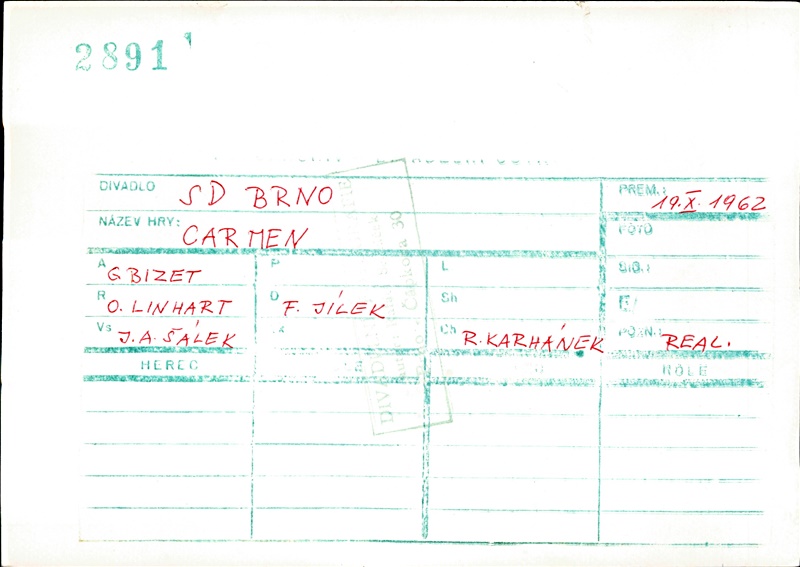 2891
DIVADLO SD BRNO PREM.: 19.X. 1962
NÁZEV HRY: CARMEN FOTO
A G. BIZET P L SIG.:
R O. LINHART D F. JÍLEK Sh
Vs J.A. ŠÁLEK Ch R. KARHÁNEK POZN.: REAL.
HEREC ROLE